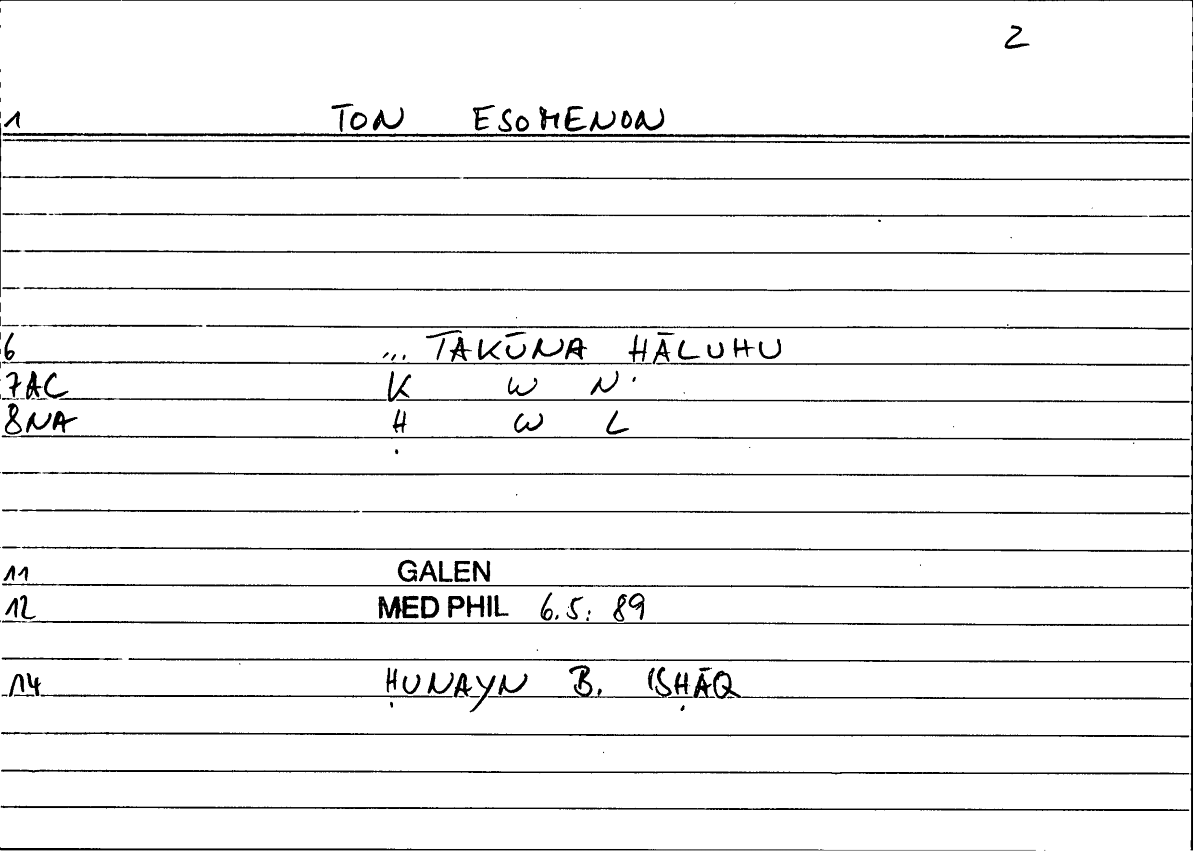 2
1 TON ESOMENON
6 ... TAKŪNA HĀLUHU
7AC K W N
8NA Ḥ W L
11 GALEN
12 MED PHIL 6.5: 89
14 ḤUNAYN B. ISḤĀQ